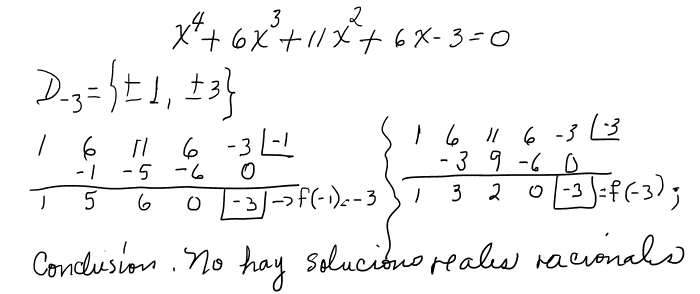 x⁴ + 6x³ + 11x² + 6x - 3 = 0
D₋₃ = {±1, ±3}
1 6 11 6 -3 |-1
-1 -5 -6 0
1 5 6 0 |-3| → f(-1) = -3
1 6 11 6 -3 |-3
-3 9 -6 0
1 3 2 0 |-3| = f(-3) ;
Conclusión. No hay soluciono reales racionales